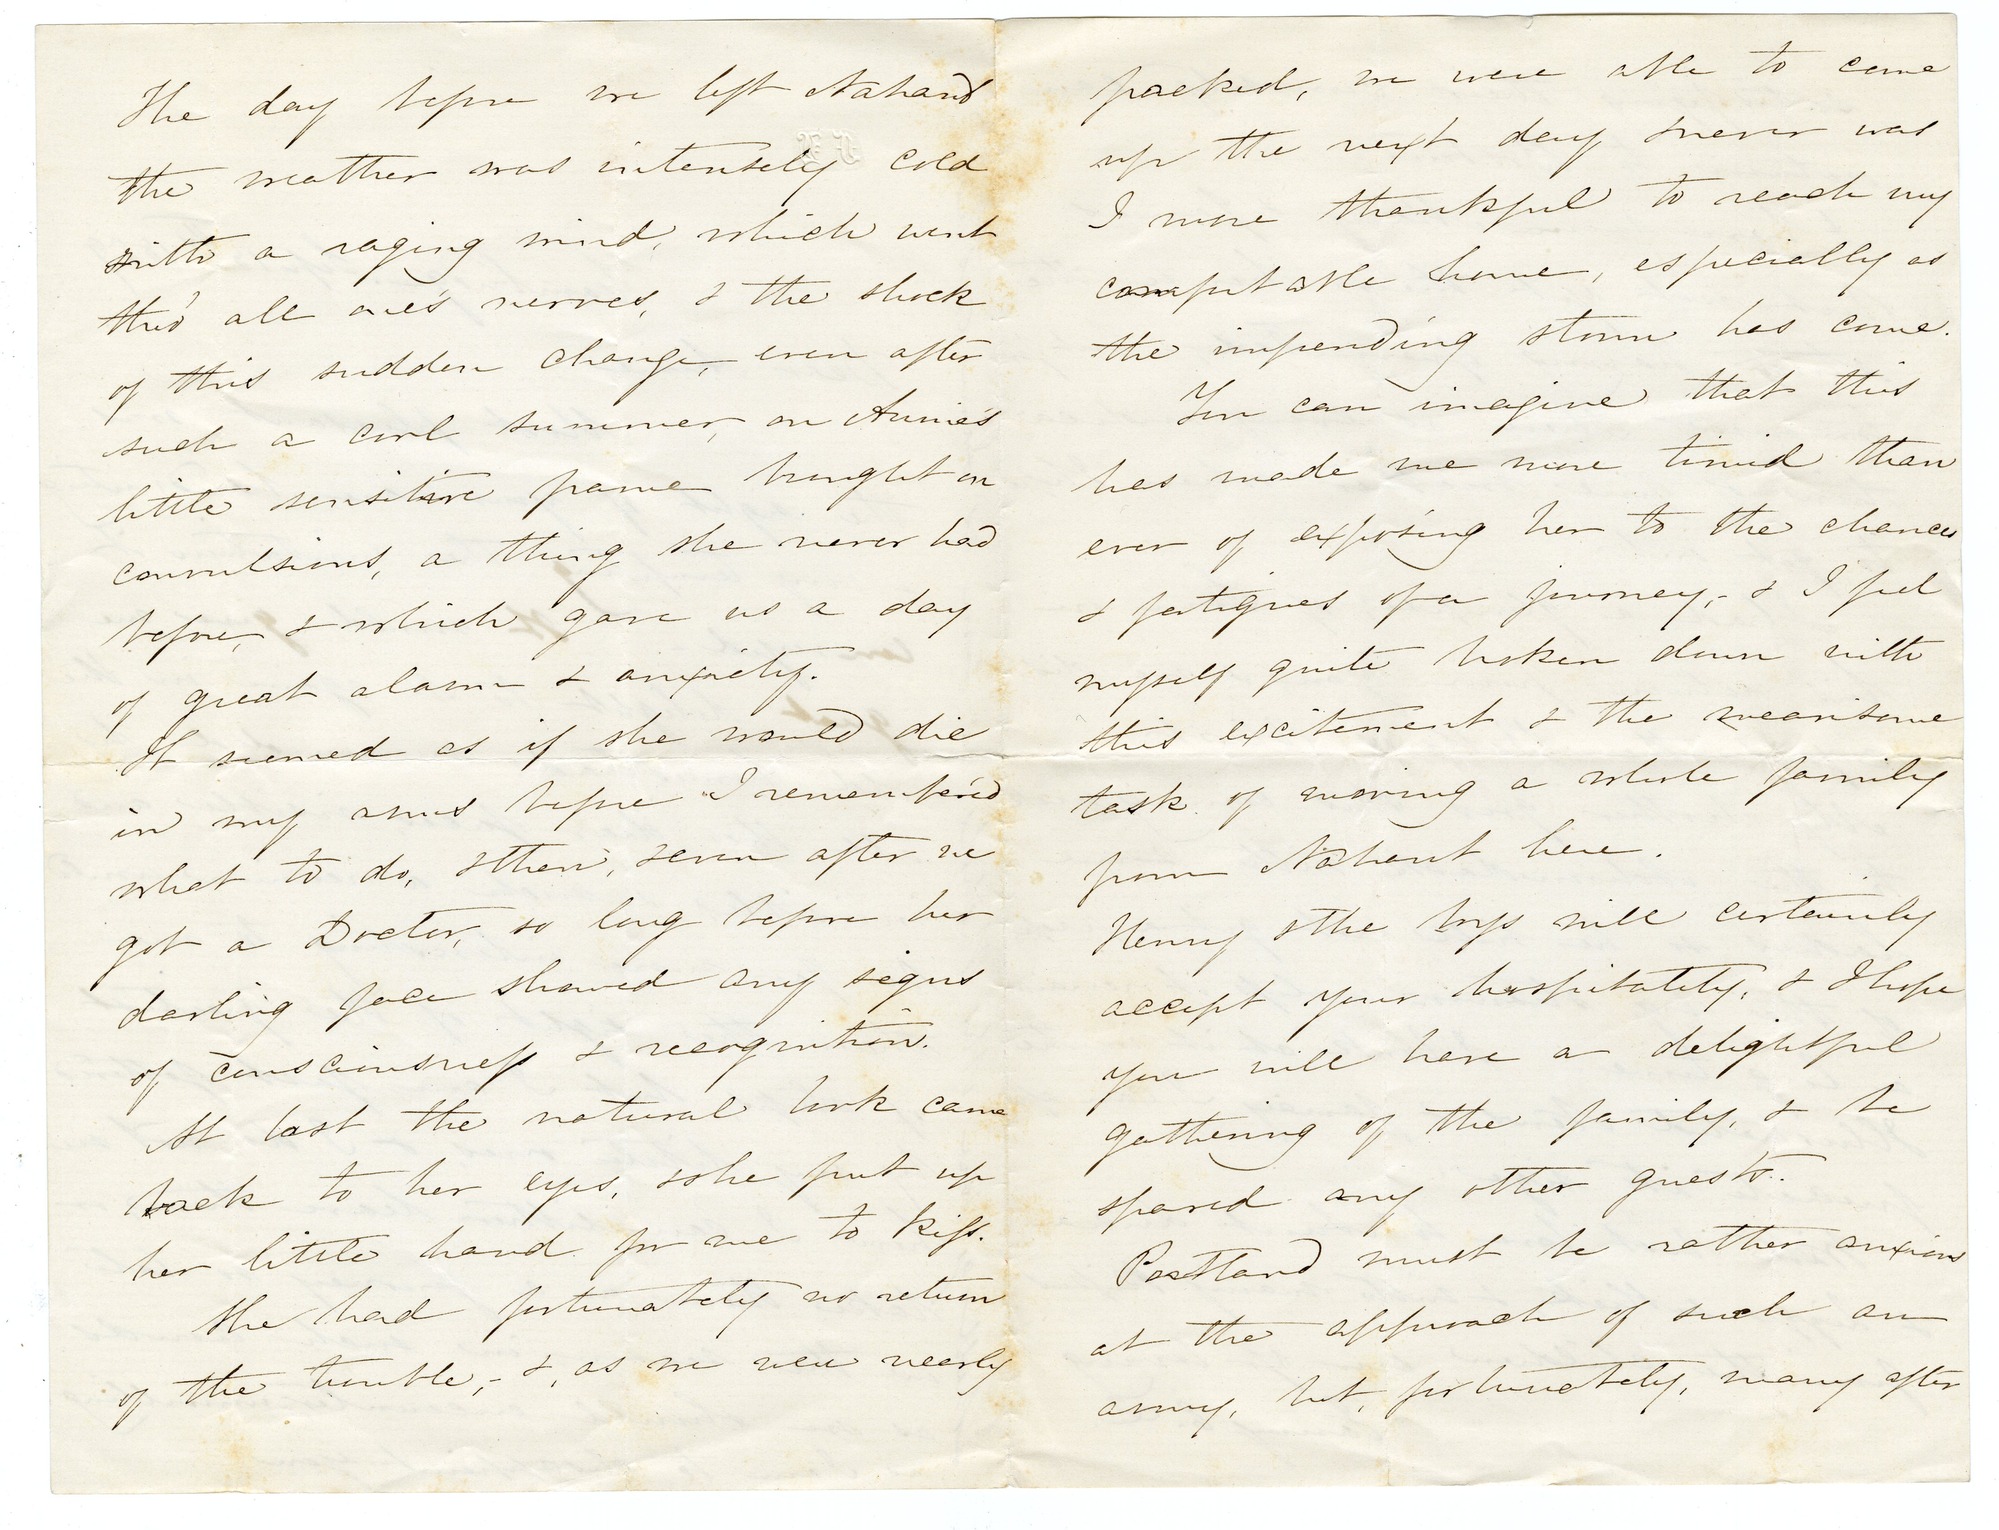 The day before we left Nahant
the weather was intensely cold
with a raging wind, which went
thro' all one's nerves, & the shock
of this sudden change, even after
such a cool summer, on Annie's
little sensitive frame brought on
convulsions, a thing she never had
before, & which gave us a day
of great alarm & anxiety.
It seemed as if she would die
in my arms before I remembered
what to do, & then, & even after we
got a Doctor, so long before her
darling face showed any signs
of consciousness & recognition.
At last the natural look came
back to her eyes, & she put up
her little hand for me to kiss.
She had fortunately no return
of the trouble, - &, as we were nearly
packed, we were able to come
up the next day & never was
I more thankful to reach my
comfortable home, especially as
the impending storm has come.
You can imagine that this
has made me more timid than
ever of exposing her to the chances
& fatigues of a journey, - & I feel
myself quite broken down with
this excitement & the wearisome
task of moving a whole family
from Nahant here.
Henry & the boys will certainly
accept your hospitality, & I hope
you will have a delightful
gathering of the family, & be
spared any other guests.
Portland must be rather anxious
at the approach of such an
army, but, fortunately, many after